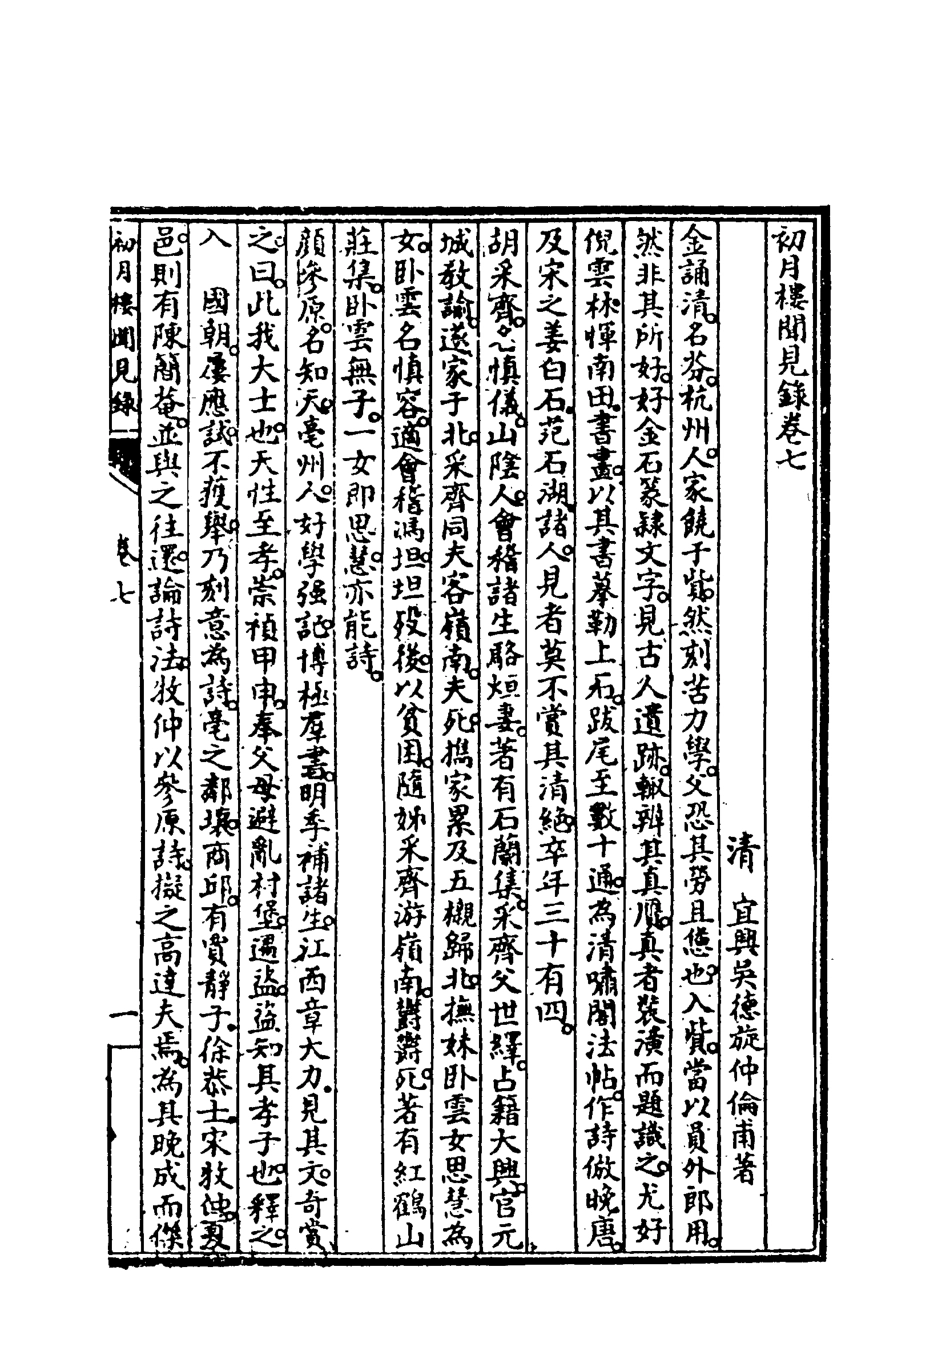 初月樓聞見錄卷七
清　宜興吳德旋仲倫甫著
金誦清。名芬。杭州人。家饒于貲。然刻苦力學。父恐其勞且憊也。入貲。當以員外郎用。
然非其所好。好金石篆隸文字。見古人遺跡。輒辨其真贋。真者裝潢而題識之。尤好
倪雲林惲南田。書畫。以其書摹勒上石。跋尾至數十通。為清嘯閣法帖。作詩倣晚唐。
及宋之姜白石。范石湖。諸人。見者莫不賞其清絕。卒年三十有四。
胡采齊。名慎儀。山陰人。會稽諸生駱烜妻。著有石蘭集。采齊父世繹。占籍大興。官元
城教諭。遂家于北。采齊同夫客嶺南。夫死。攜家累及五櫬歸北。撫妹臥雲女思慧為
女。臥雲名慎容。適會稽馮坦。坦歿後。以貧困。隨姊采齊游嶺南。鬱鬱死。著有紅鶴山
莊集。臥雲無子。一女即思慧。亦能詩。
顏參原。名知天。亳州人。好學强記。博極羣書。明季補諸生。江西章大力。見其文。奇賞
之。曰。此我大士也。天性至孝。崇禎甲申。奉父母避亂村堡。遇盜。盜知其孝子也。釋之。
入　國朝。屢應試。不獲舉。乃刻意為詩。亳之鄰壤商邱。有賈靜子。徐恭士。宋牧仲。夏
邑。則有陳簡菴。並與之往還。論詩法。牧仲以參原詩。擬之高達夫焉。為其晚成而傑
初月樓聞見錄　卷七　一